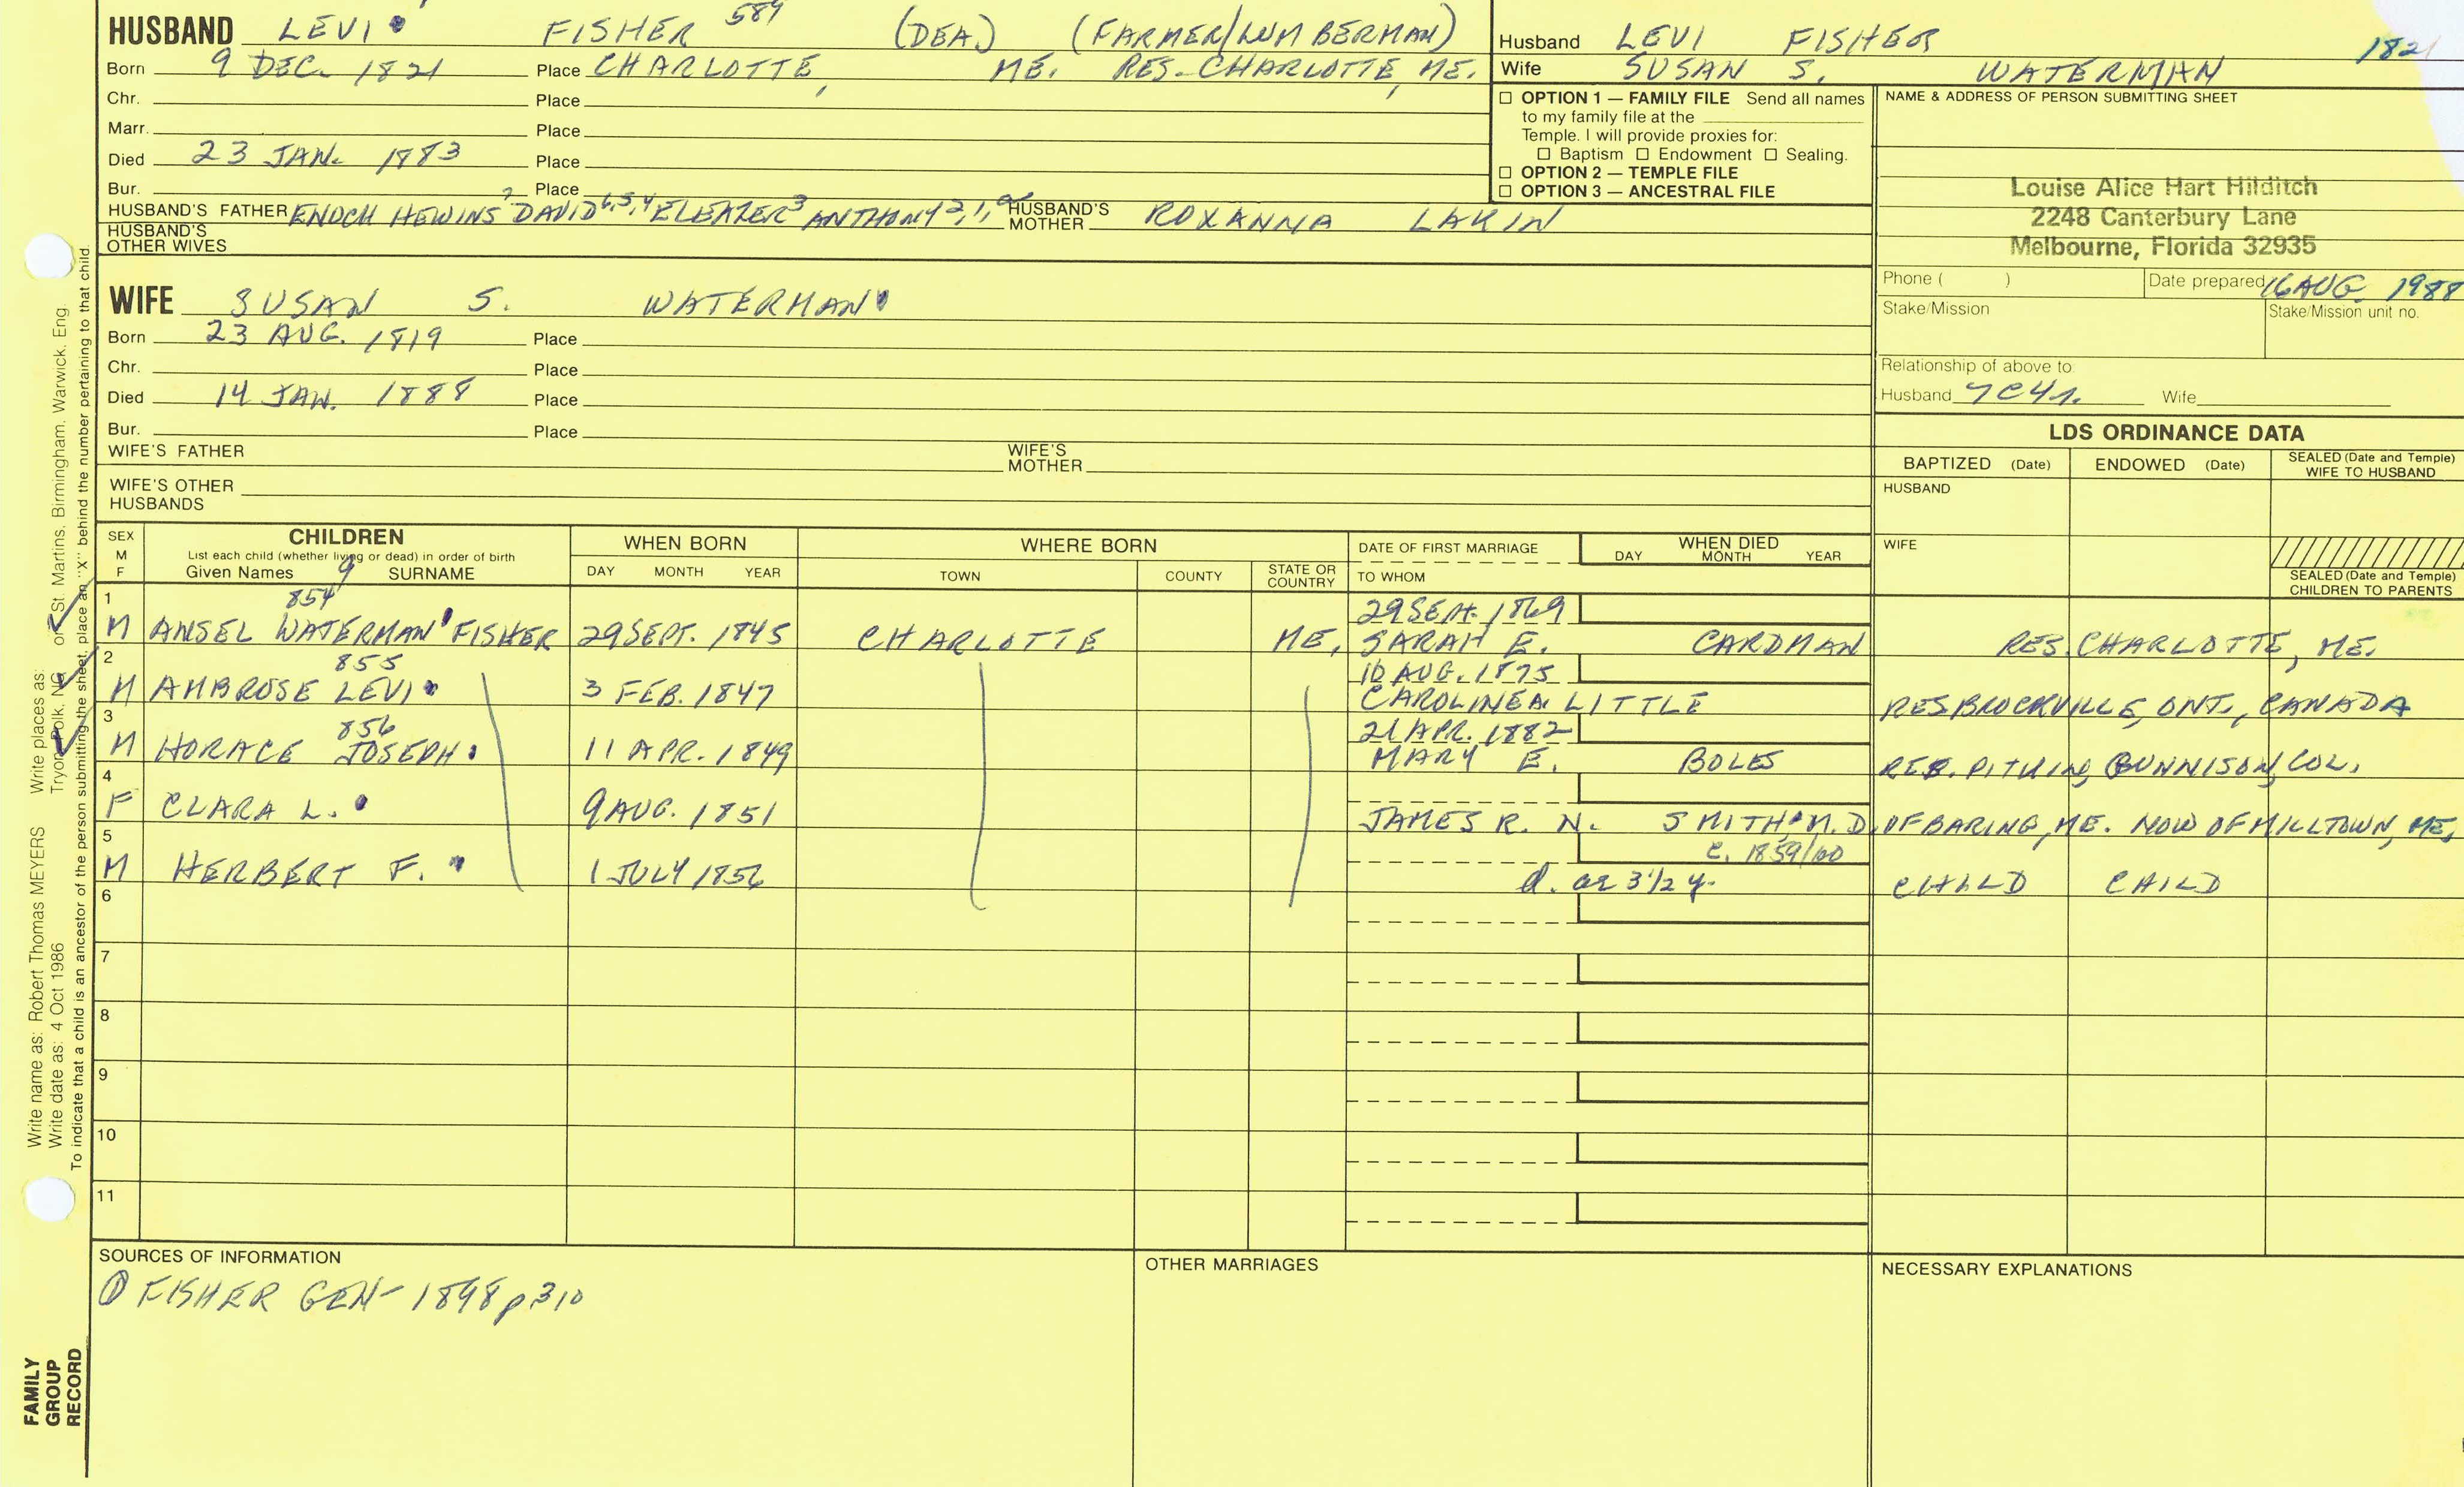 HUSBAND LEVI FISHER 589 (DEA.) (FARMER/LUMBERMAN)
Born 9 DEC. 1821 Place CHARLOTTE, ME. RES-CHARLOTTE, ME.
Chr. Place
Marr. Place
Died 23 JAN. 1883 Place
Bur. Place
HUSBAND'S FATHER ENOCH HEWINS 7 DAVID 6,5,4 ELEAZER 3 ANTHONY 2,1, HUSBAND'S MOTHER ROXANNA LAKIN
HUSBAND'S OTHER WIVES
Husband LEVI FISHER 1821
Wife SUSAN S. WATERMAN
☐ OPTION 1 — FAMILY FILE Send all names
to my family file at the
Temple. I will provide proxies for:
☐ Baptism ☐ Endowment ☐ Sealing.
☐ OPTION 2 — TEMPLE FILE
☐ OPTION 3 — ANCESTRAL FILE
NAME & ADDRESS OF PERSON SUBMITTING SHEET
Louise Alice Hart Hilditch
2248 Canterbury Lane
Melbourne, Florida 32935
Phone ( ) Date prepared 16 AUG. 1988
Stake/Mission Stake/Mission unit no.
Relationship of above to:
Husband 7C4R. Wife
WIFE SUSAN S. WATERMAN
Born 23 AUG. 1819 Place
Chr. Place
Died 14 JAN. 1888 Place
Bur. Place
WIFE'S FATHER WIFE'S MOTHER
WIFE'S OTHER HUSBANDS
LDS ORDINANCE DATA
BAPTIZED (Date) ENDOWED (Date) SEALED (Date and Temple) WIFE TO HUSBAND
HUSBAND
WIFE
SEALED (Date and Temple) CHILDREN TO PARENTS
SEX M F
CHILDREN
List each child (whether living or dead) in order of birth
Given Names 9 SURNAME
WHEN BORN
DAY MONTH YEAR
WHERE BORN
TOWN COUNTY STATE OR COUNTRY
DATE OF FIRST MARRIAGE
TO WHOM
WHEN DIED
DAY MONTH YEAR
1 854 29 SEPT. 1869
M ANSEL WATERMAN FISHER 29 SEPT. 1845 CHARLOTTE ME. SARAH E. CARDMAN RES. CHARLOTTE, ME.
2 855 10 AUG. 1875
M AMBROSE LEVI 3 FEB. 1847 CAROLINE A. LITTLE RES BROCKVILLE, ONT., CANADA
3 856 21 APR. 1882
M HORACE JOSEPH 11 APR. 1849 MARY E. BOLES RES. PITKIN, GUNNISON, COL.
4
F CLARA L. 9 AUG. 1851 JAMES R. N. SMITH M.D. OF BARING, ME. NOW OF MILLTOWN, ME.
5 c. 1859/60
M HERBERT F. 1 JULY 1856 d. ae 3 1/2 y. CHILD CHILD
6
7
8
9
10
11
SOURCES OF INFORMATION
① FISHER GEN- 1898 p 310
OTHER MARRIAGES
NECESSARY EXPLANATIONS
Write name as: Robert Thomas MEYERS Write places as: Tryon, Polk, NC or St. Martins, Birmingham, Warwick, Eng.
Write date as: 4 Oct 1986
To indicate that a child is an ancestor of the person submitting the sheet, place an "X" behind the number pertaining to that child.
FAMILY
GROUP
RECORD